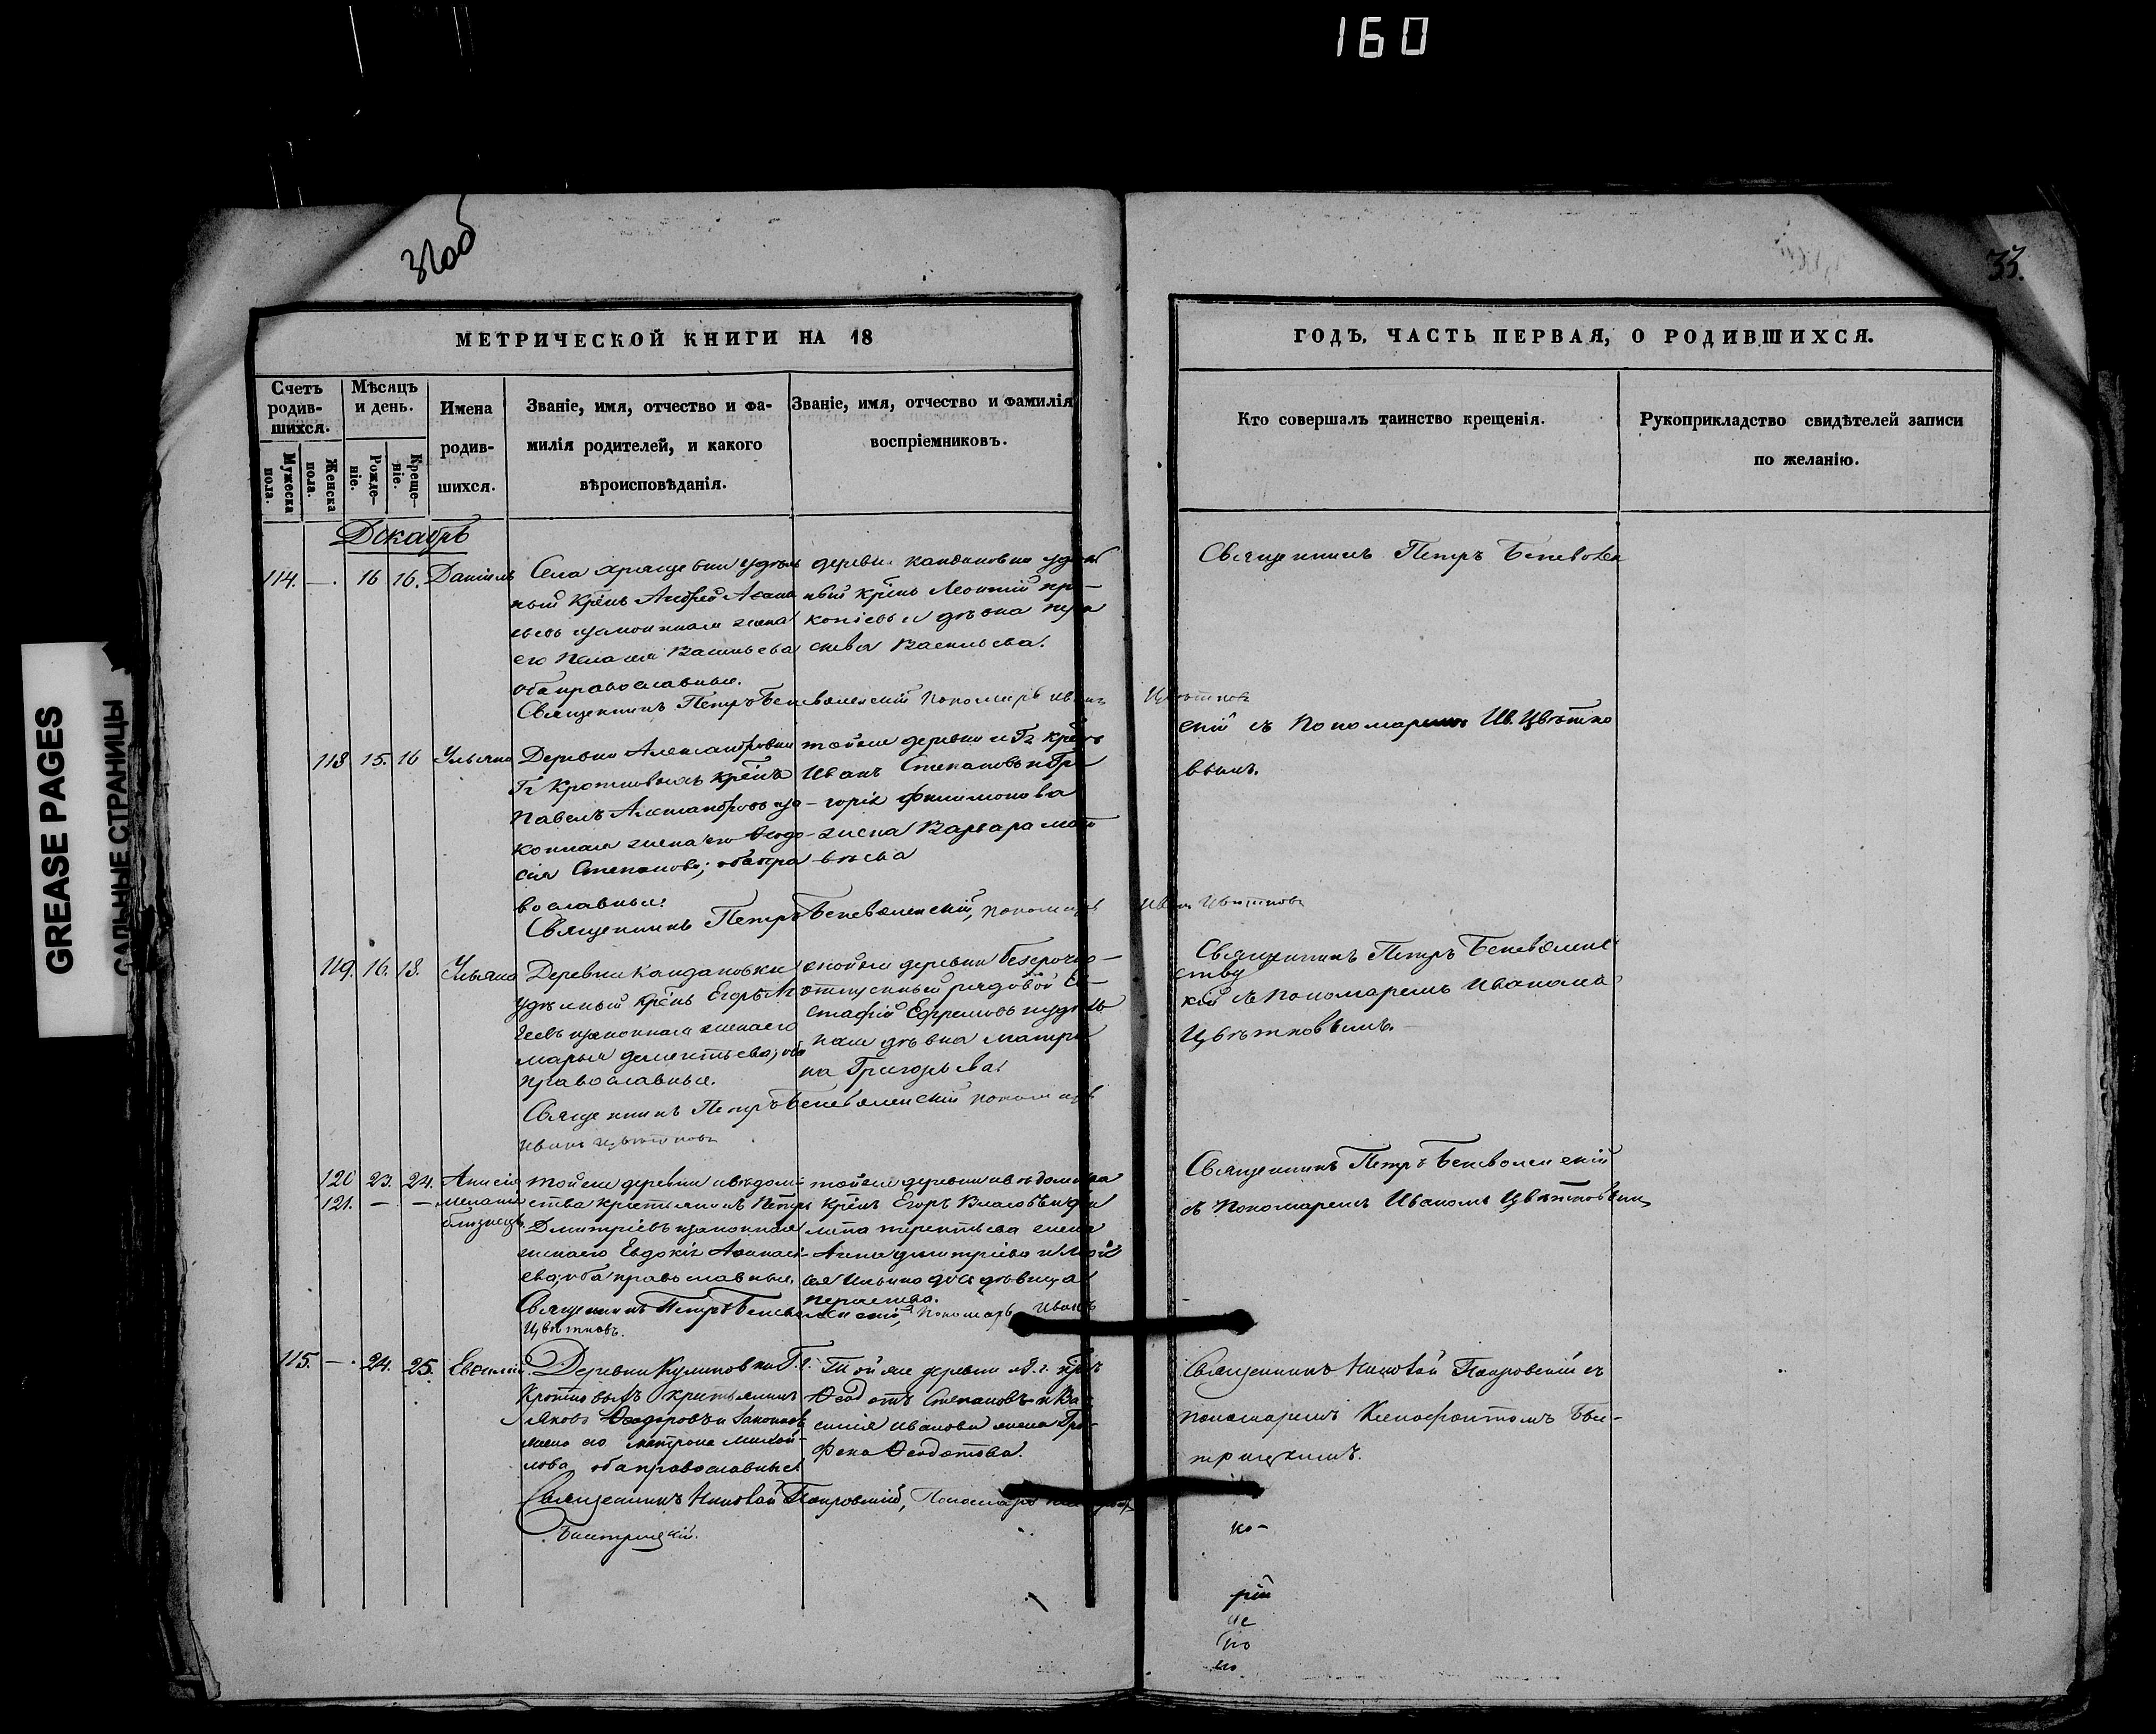 160
32об
33.
МЕТРИЧЕСКОЙ КНИГИ НА 18
ГОДЪ, ЧАСТЬ ПЕРВАЯ, О РОДИВШИХСЯ.
Счетъ родив-шихся.
Мужеска пола.
Женска пола.
Мѣсяцъ и день.
Рожде-ніе.
Креще-ніе.
Имена
родив-
шихся.
Званіе, имя, отчество и фа-
милія родителей, и какого
вѣроисповѣданія.
Званіе, имя, отчество и фамилія
воспріемниковъ.
Кто совершалъ таинство крещенія.
Рукоприкладство свидѣтелей записи
по желанію.
Декабрь
114. — 16 16. Даніилъ
Села удѣль
ный Крѣнъ Андрей
законная жена
его Васильева
оба православные.
Священникъ Петръ Беневоленскій Пономарь Иванъ Цвѣтковъ
деревни удѣль
ный крѣнъ Леонтій про-
копіевъ и дѣвка
Васильева.
Священникъ Петръ Беневолен
скій съ Пономаремъ Ив. Цвѣтко
вымъ.
118 15. 16 Ульяна
Деревни Александровки
Гг Кротковыхъ крѣнъ
Павелъ Александровъ и за-
конная жена его Ѳеодо-
сія Степанова; оба пра
вославные.
Священникъ Петръ Беневоленскій, пономарь Иванъ Цвѣтковъ
тойже деревни и Гг крѣнъ
Иванъ Степановъ и Гри
горія Филимонова
жена Варвара Мат
вѣева
119. 16. 18. Ульяна
Деревни Кандаковки
удѣльный крѣнъ Егоръ
законная жена его
Марья Дементьева; оба
православные.
Священникъ Петръ Беневоленскій пономарь
Иванъ Цвѣтковъ
тойже деревни безсрочно-
отпускный рядовой Ев-
стафій Ефремовъ и удѣль
ная дѣвка Матре
на Григорьева.
Священникъ Петръ Беневоленс
ству
кій съ Пономаремъ Иваномъ
Цвѣтковымъ.
120 23. 24. Анисія
121. — — Меланія
близнецы
тойже деревни и вѣдом-
ства крестьянинъ Петръ
Дмитріевъ и законная
жена его Евдокія Аѳанась
ева; оба православные.
Священникъ Петръ Беневоленскій, Пономарь Иванъ
Цвѣтковъ.
тойже деревни и вѣдомства
крѣнъ Егоръ
терентьева жена
Анна Дмитріева и
Ильина дѣвица
Священникъ Петръ Беневоленскій
съ Пономаремъ Иваномъ Цвѣтковымъ
115. — 24. 25. Евгеній.
Деревни Куликовки Г.г.
Кротковыхъ крестьянинъ
Яковъ Ѳеодоровъ и законная
жена его Матрона Михай-
лова, оба православные
Священникъ Николай Покровскій, Пономарь
Быстрицкій.
Тойже деревни и г.г. крѣнъ
Ѳедотъ Степановъ и Ва
силія Иванова жена Гра-
фена Ѳедотова.
Священникъ Николай Покровскій съ
пономаремъ Ксенофонтомъ Бы-
стрицкимъ.
ко-
рій
не
но
но
GREASE PAGES
САЛЬНЫЕ СТРАНИЦЫ